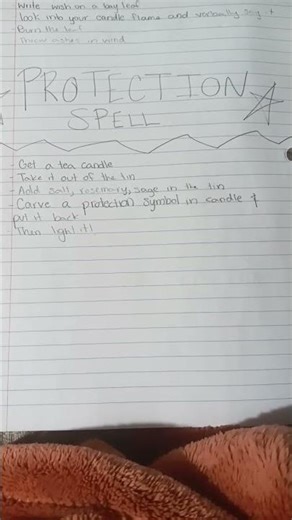 Write wish on a bay leaf
Look into your candle flame and verbally say it
Burn the leaf
Throw ashes in wind
PROTECTION
SPELL
- Get a tea candle
- Take it out of the tin
- Add salt, rosemary, sage in the tin
- Carve a protection symbol in candle &
put it back
- Then light it!